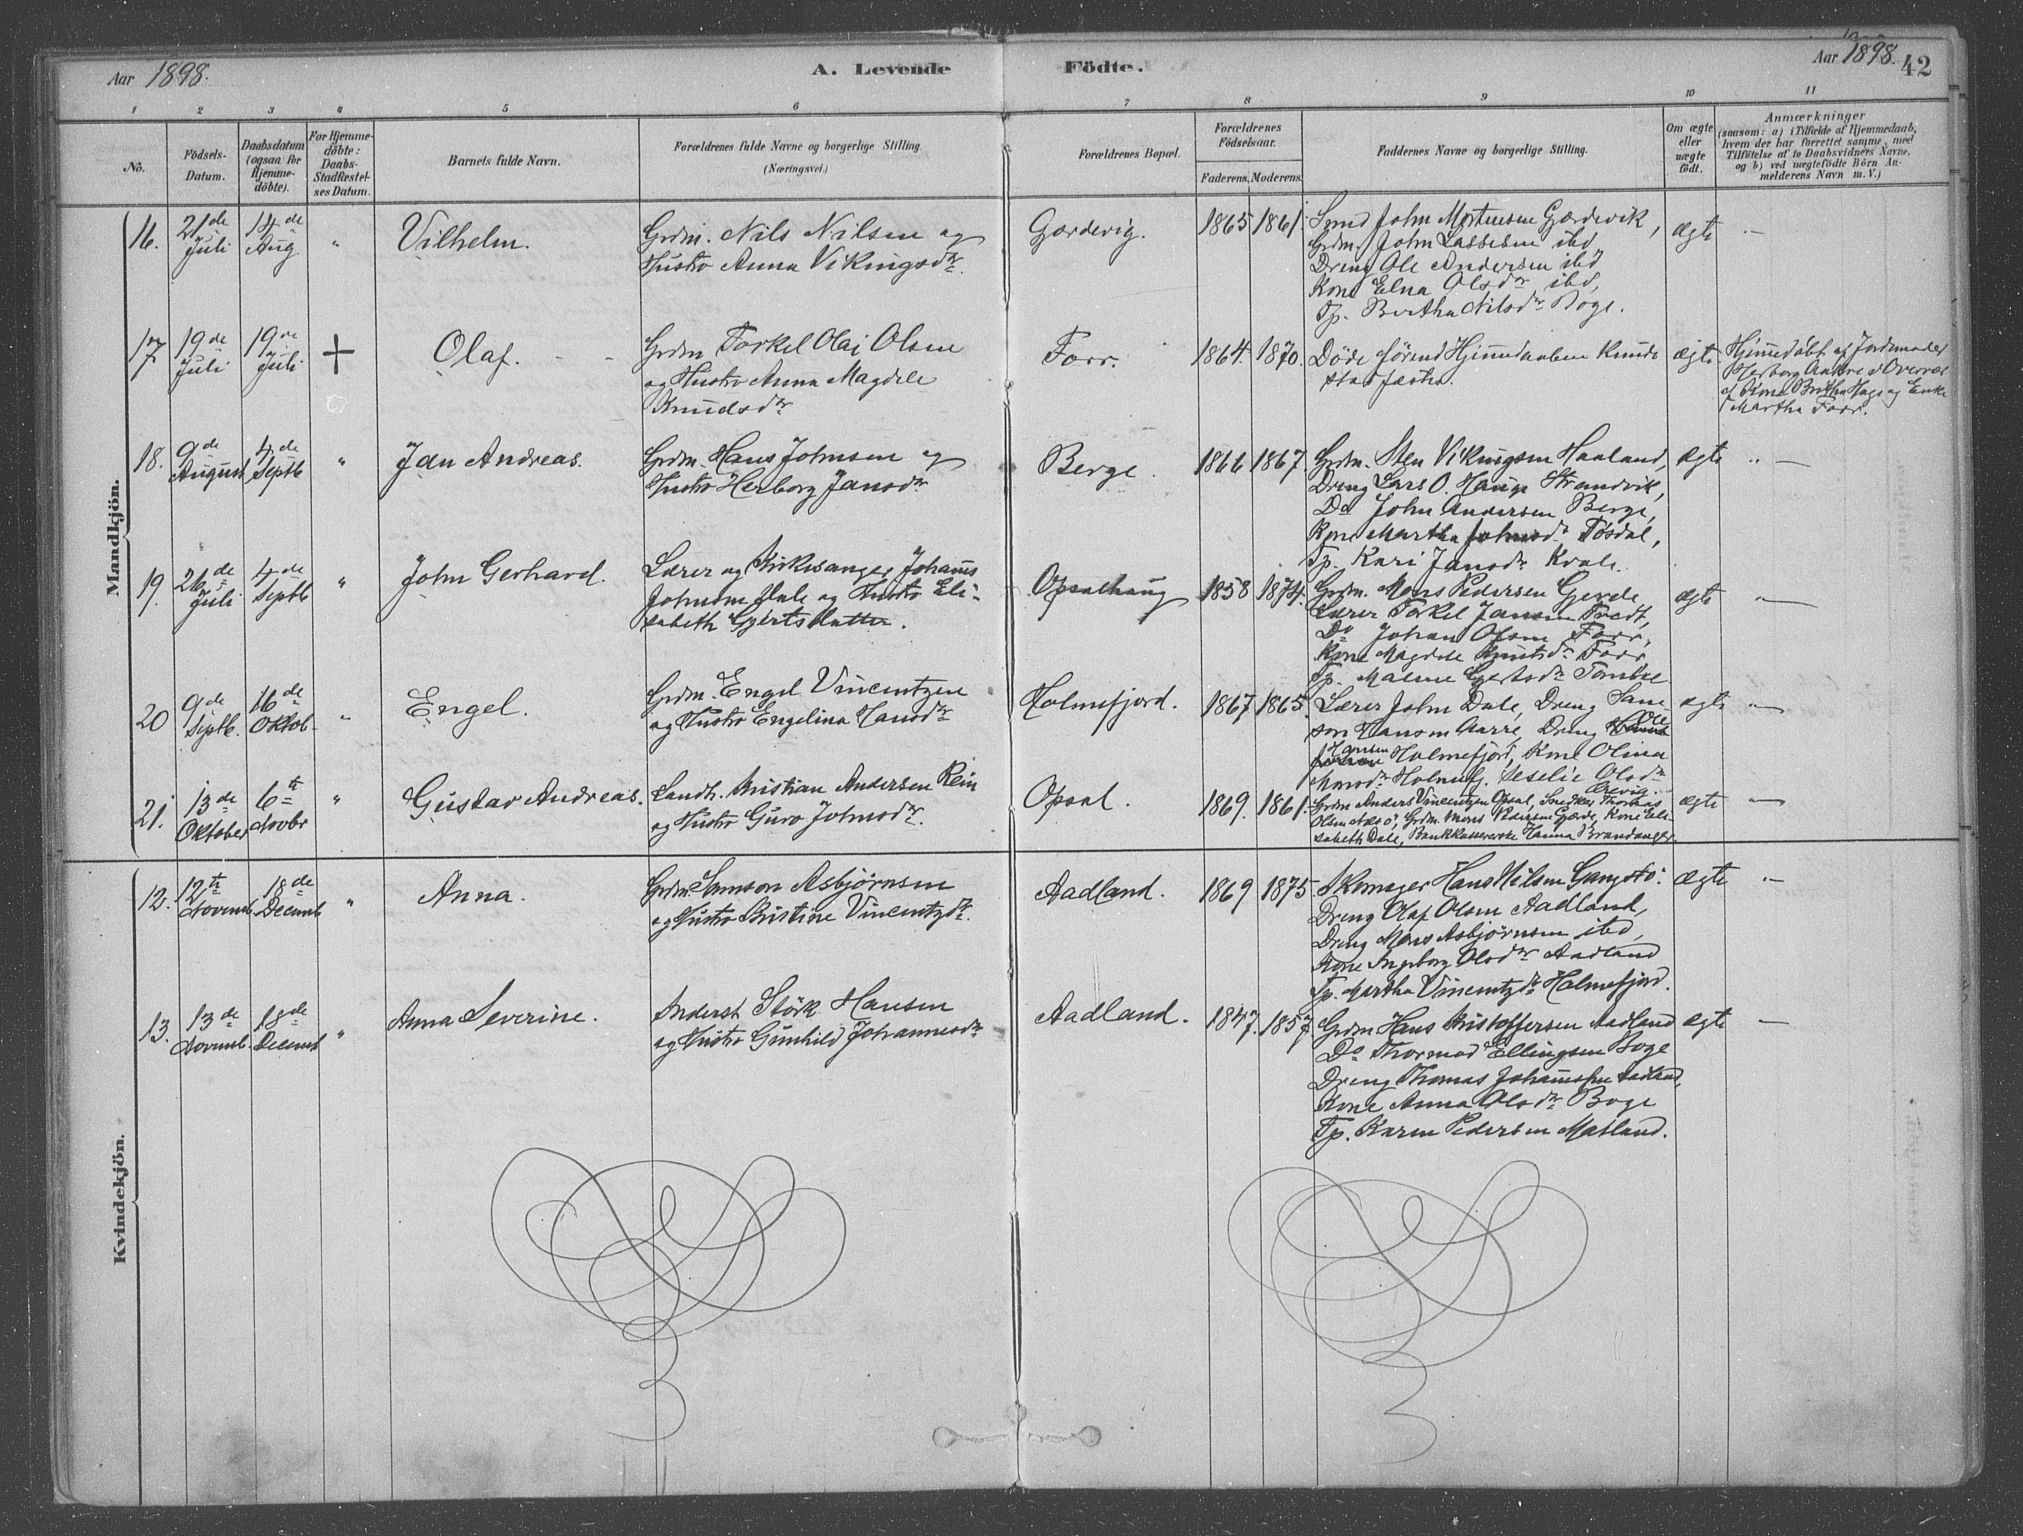 Aar 1898.
A. Levende Födte.
Aar 1898. 42
1 2 3 4 5 6 7 8 9 10 11
No.
Födsels-Datum.
Daabsdatum (ogsaa for Hjemme-döbte).
For Hjemme-döbte: Daabs-Stadfæstel-ses Datum.
Barnets fulde Navn.
Forældrenes fulde Navne og borgerlige Stilling.
(Næringsvei.)
Forældrenes Bopæl.
Forældrenes Födselsaar.
Faderens. Moderens.
Faddernes Navne og borgerlige Stilling.
Om ægte eller uægte födt.
Anmærkninger
(saasom: a) i Tilfælde af Hjemmedaab, hvem der har forrettet samme, med Tilföielse af to Daabsvidners Navne, og b) ved uægtefödte Börn An-melderens Navn m. V.)
Mandkjön.
16. 21de Juli 14de Aug " Vilhelm.
Grdm. Nils Nilsen og
Hustro Anna Vikingsdr.
Gordevig. 1865 1861.
Smed John Mortensen Gjerdevik,
Grdm. John Lassesen ibd,
Dreng Ole Andersen ibd,
Kone Elna Olsdr ibd,
Tp. Bertha Nilsdr Boge.
ægte —
17. 19de Juli 19de Juli + Olaf.
Grdm Torkel Olai Olsen
og Hustro Anna Magdele
Knudsdr
Forr. 1864. 1870.
Døde förend Hjemmedaaben kunde
stadfæstes.
ægte
Hjemmedöbt af Jordemoder
Herborg
af Kone Bertha Hage og Enke
Martha Forr.
18. 9de August 4de Septb " Jan Andreas.
Grdm. Hans Johnsen og
Hustro Herborg Jansdr
Berge. 1866 1867.
Grdm. Sten Vikingsen Haaland,
Dreng Lars O. Hauge Strandvik,
Do John Andersen Berge,
Kone Martha Johnsdr Tösdal,
Tp. Kari Jansdr Kvale.
ægte " —
19. 26de Juli 4de Septb " John Gerhard.
Lærer og Kirkesanger Johannes
Johnsen Dale og Hustro Eli-
sabeth Gjertsdatter.
Opsalhaug 1858 1874.
Grdm. Mons Pedersen Gerde
Lærer Torkel Jansen Tvedt,
Do Johan Olsen Forr,
Kone Magdele Knutsdr Forr
Tp. Malene Gjertsdr
ægte "—
20 9de Septb. 16de Oktob. " Engel.
Grdm. Engel Vincentzen
og Hustro Engelina Hansdr
Holmefjord. 1867. 1865.
Lærer John Dale, Dreng Sam-
son Hansen Aarre, Dreng Ole
Hansen Holmefjord, Kone Olina
Monsdr Holmefj. Seselie Olsdr
Ærevig.
ægte "—
21. 13de Oktober 6te Novbr " Gustav Andreas.
Landh. Kristian Andersen Rein
og Hustro Guro Johnsdr.
Opsal. 1869. 1861.
Grdm Anders Vincentzen Opsal, Snedker Thomas
Olsen Aksö, Grdm Mons Pedersen Gjerde, Kone Eli-
sabeth Dale, Bankkassererske Hanna Brandanger.
ægte "—
Kvindekjön.
12. 12te Novemb 18de Decemb " Anna.
Grdm Samson Asbjørnsen
og Hustro Kristine Vincentzdr.
Aadland. 1869 1875.
Skomager Hans Nilsen Gangstö.
Dreng Olaf Olsen Aadland,
Dreng Mons Asbjörnsen ibd,
Kone Ingeborg Olsdr Aadland
Tp. Martha Vincentzdr Holmefjord.
ægte "
13. 13de Novemb. 18de Decemb " Anna Severine.
Inderst Störk Hansen
og Hustro Gunhild Johannesdr
Aadland. 1847. 1857.
Grdm Hans Kristoffersen Aadland
Do Thormod Ellingsen Boge
Dreng Thomas Johannessen Aadland,
Kone Anna Olsdr Boge
Tp. Karen Pedersen Matland.
ægte —